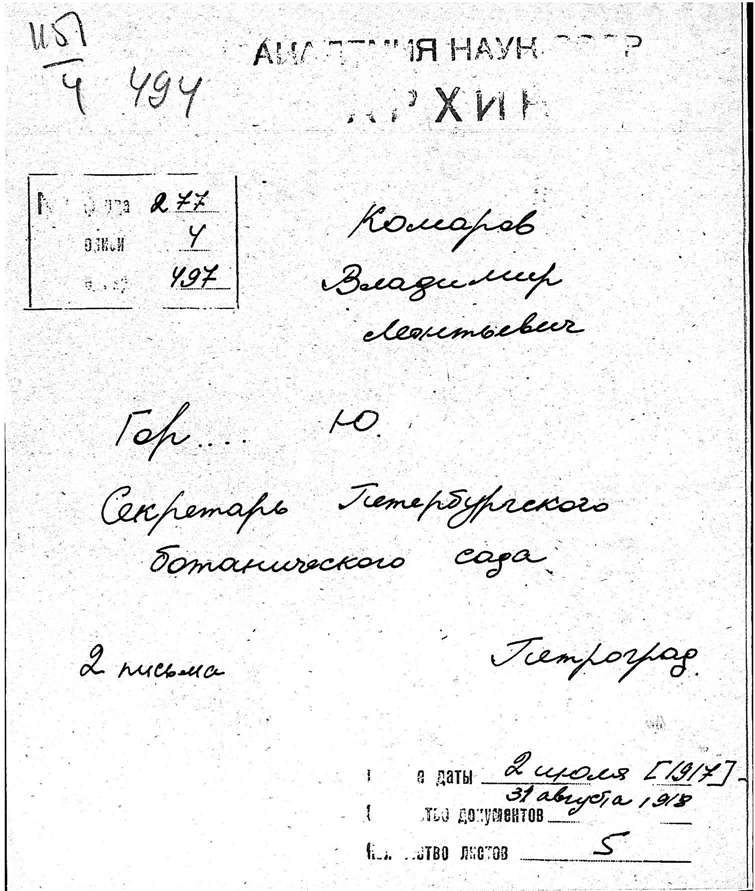 1151
4
494
АКАДЕМИЯ НАУК СССР
АРХИВ
№ фонда 277
описи 4
497
Комаров
Владимир
Леонтьевич
Гор.... Ю.
Секретарь Петербургского
ботанического сада
2 письма
Петроград.
е даты 2 июля [1917] -
31 августа 1918
тво документов
Количество листов 5